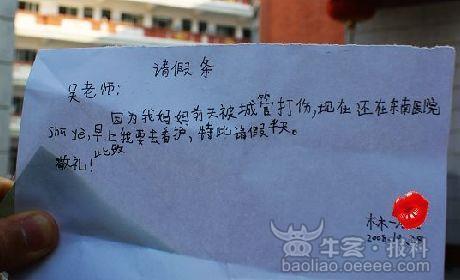 请假条
吴老师:
因为我妈妈前天被城管打伤,现在还在东南医院
shu ye,早上我要去看护,特此请假半天。
此致
敬礼!
林一
2008.10.28
牛客·报料
baoliao.oeeee.com